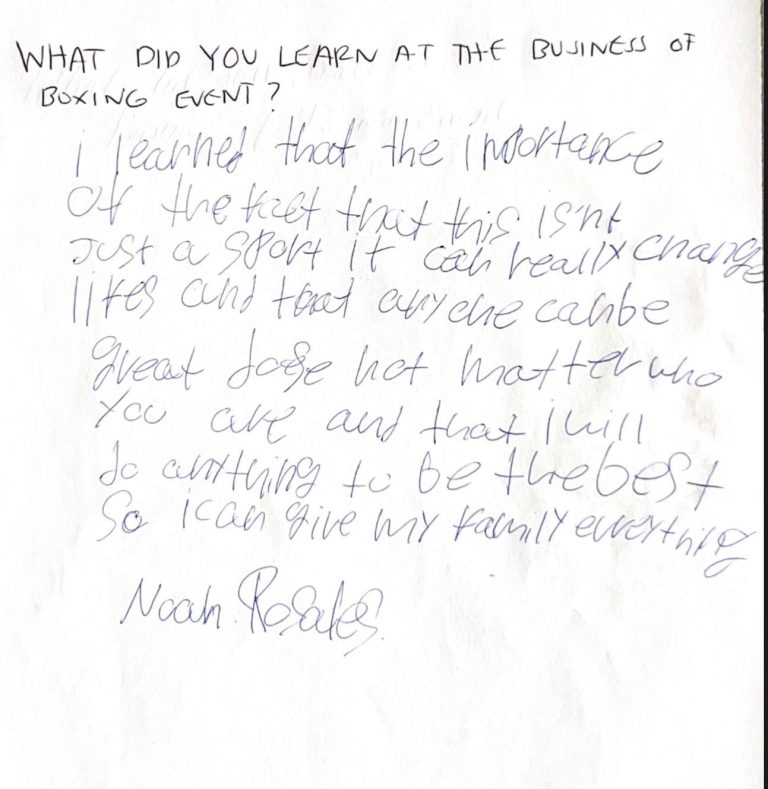 WHAT DID YOU LEARN AT THE BUSINESS OF
BOXING EVENT?
i learned that the importance
of the fact that this isnt
Just a sport it can really change
lifes and that anyone can be
great dose not matter who
you are and that i will
do anything to be the best
So i can give my family everything
Noah Rosales